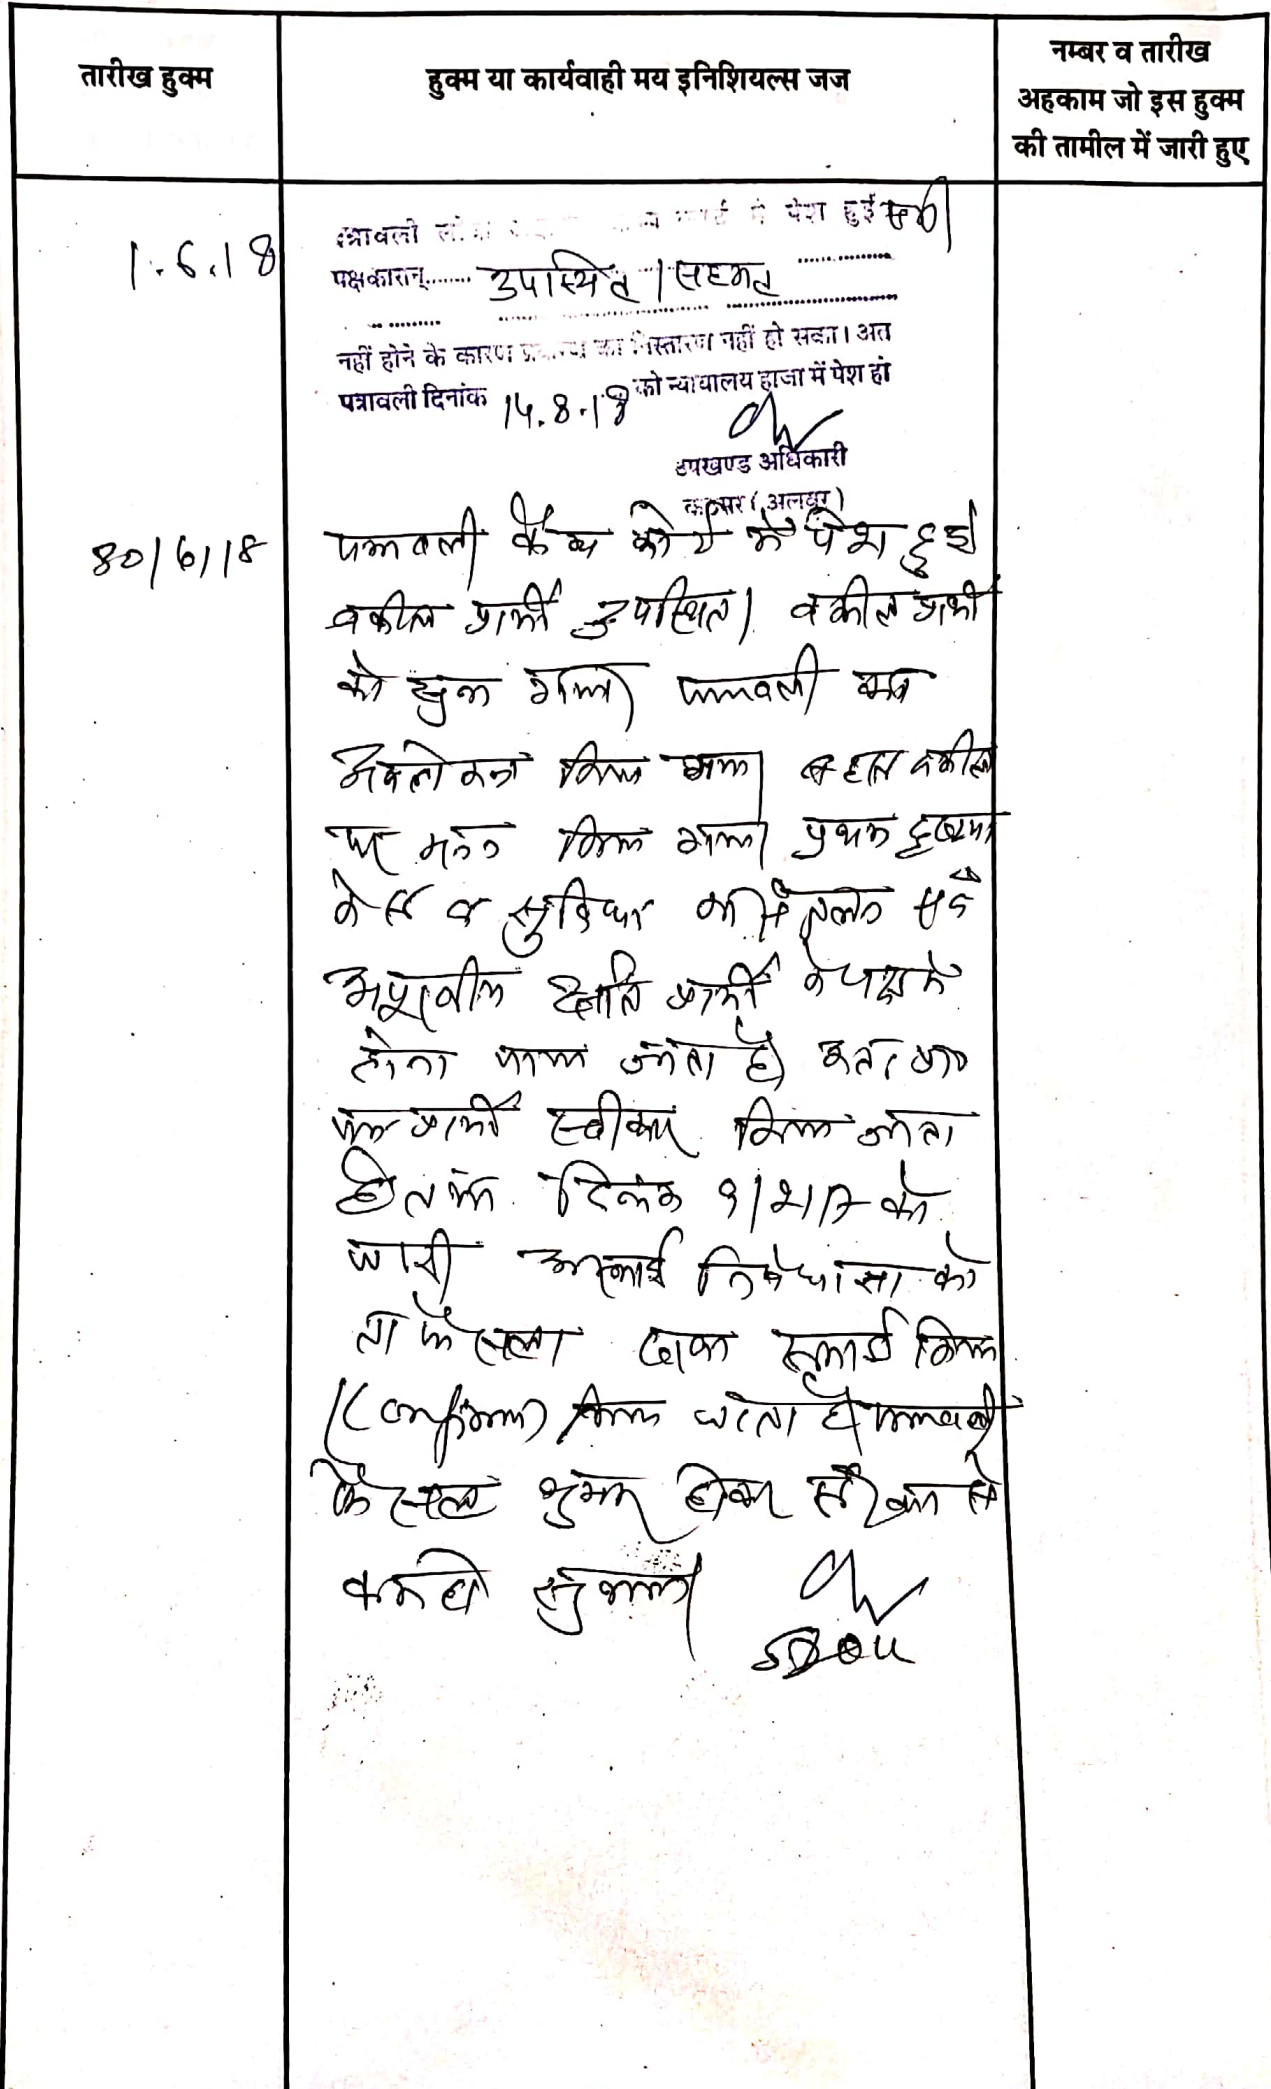 तारीख हुक्म
हुक्म या कार्यवाही मय इनिशियल्स जज
नम्बर व तारीख
अहकाम जो इस हुक्म
की तामील में जारी हुए
1.6.18
पत्रावली में पेश हुई
पक्षकारान्....... उपस्थित / सहमत
नहीं होने के कारण प्रकरण का निस्तारण नहीं हो सका। अत
पत्रावली दिनांक 14.8.18 को न्यायालय हाजा में पेश हो
उपखण्ड अधिकारी
कठूमर (अलवर)
30/6/18
पत्रावली कैम्प कोर्ट में पेश हुई
वकील प्रार्थी उपस्थित। वकील प्रार्थी
को सुना गया। पत्रावली का
अवलोकन किया गया। बहस वकील
पर मनन किया गया। प्रथम दृष्टया
केस व सुविधा का संतुलन एवं
अपूरणीय क्षति प्रार्थी के पक्ष में
होना पाया जाता है। अतः प्रा०
पत्र प्रार्थी स्वीकार किया जाता
है तथा दिनांक को
जारी अस्थाई निषेधाज्ञा को
ता फैसला दावा स्थाई किया
(Confirm) किया जाता है। पत्रावली
फैसल शुमार होकर नं० से
कम हो
SDO